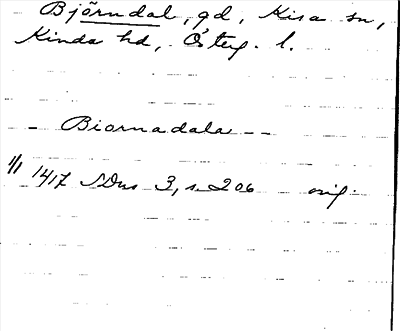 Björndal, gd, Kisa sn,
Kinda hd, Österg. l.
- Biornadala --
1/1 1417 SDns 3, s. 206 orig.